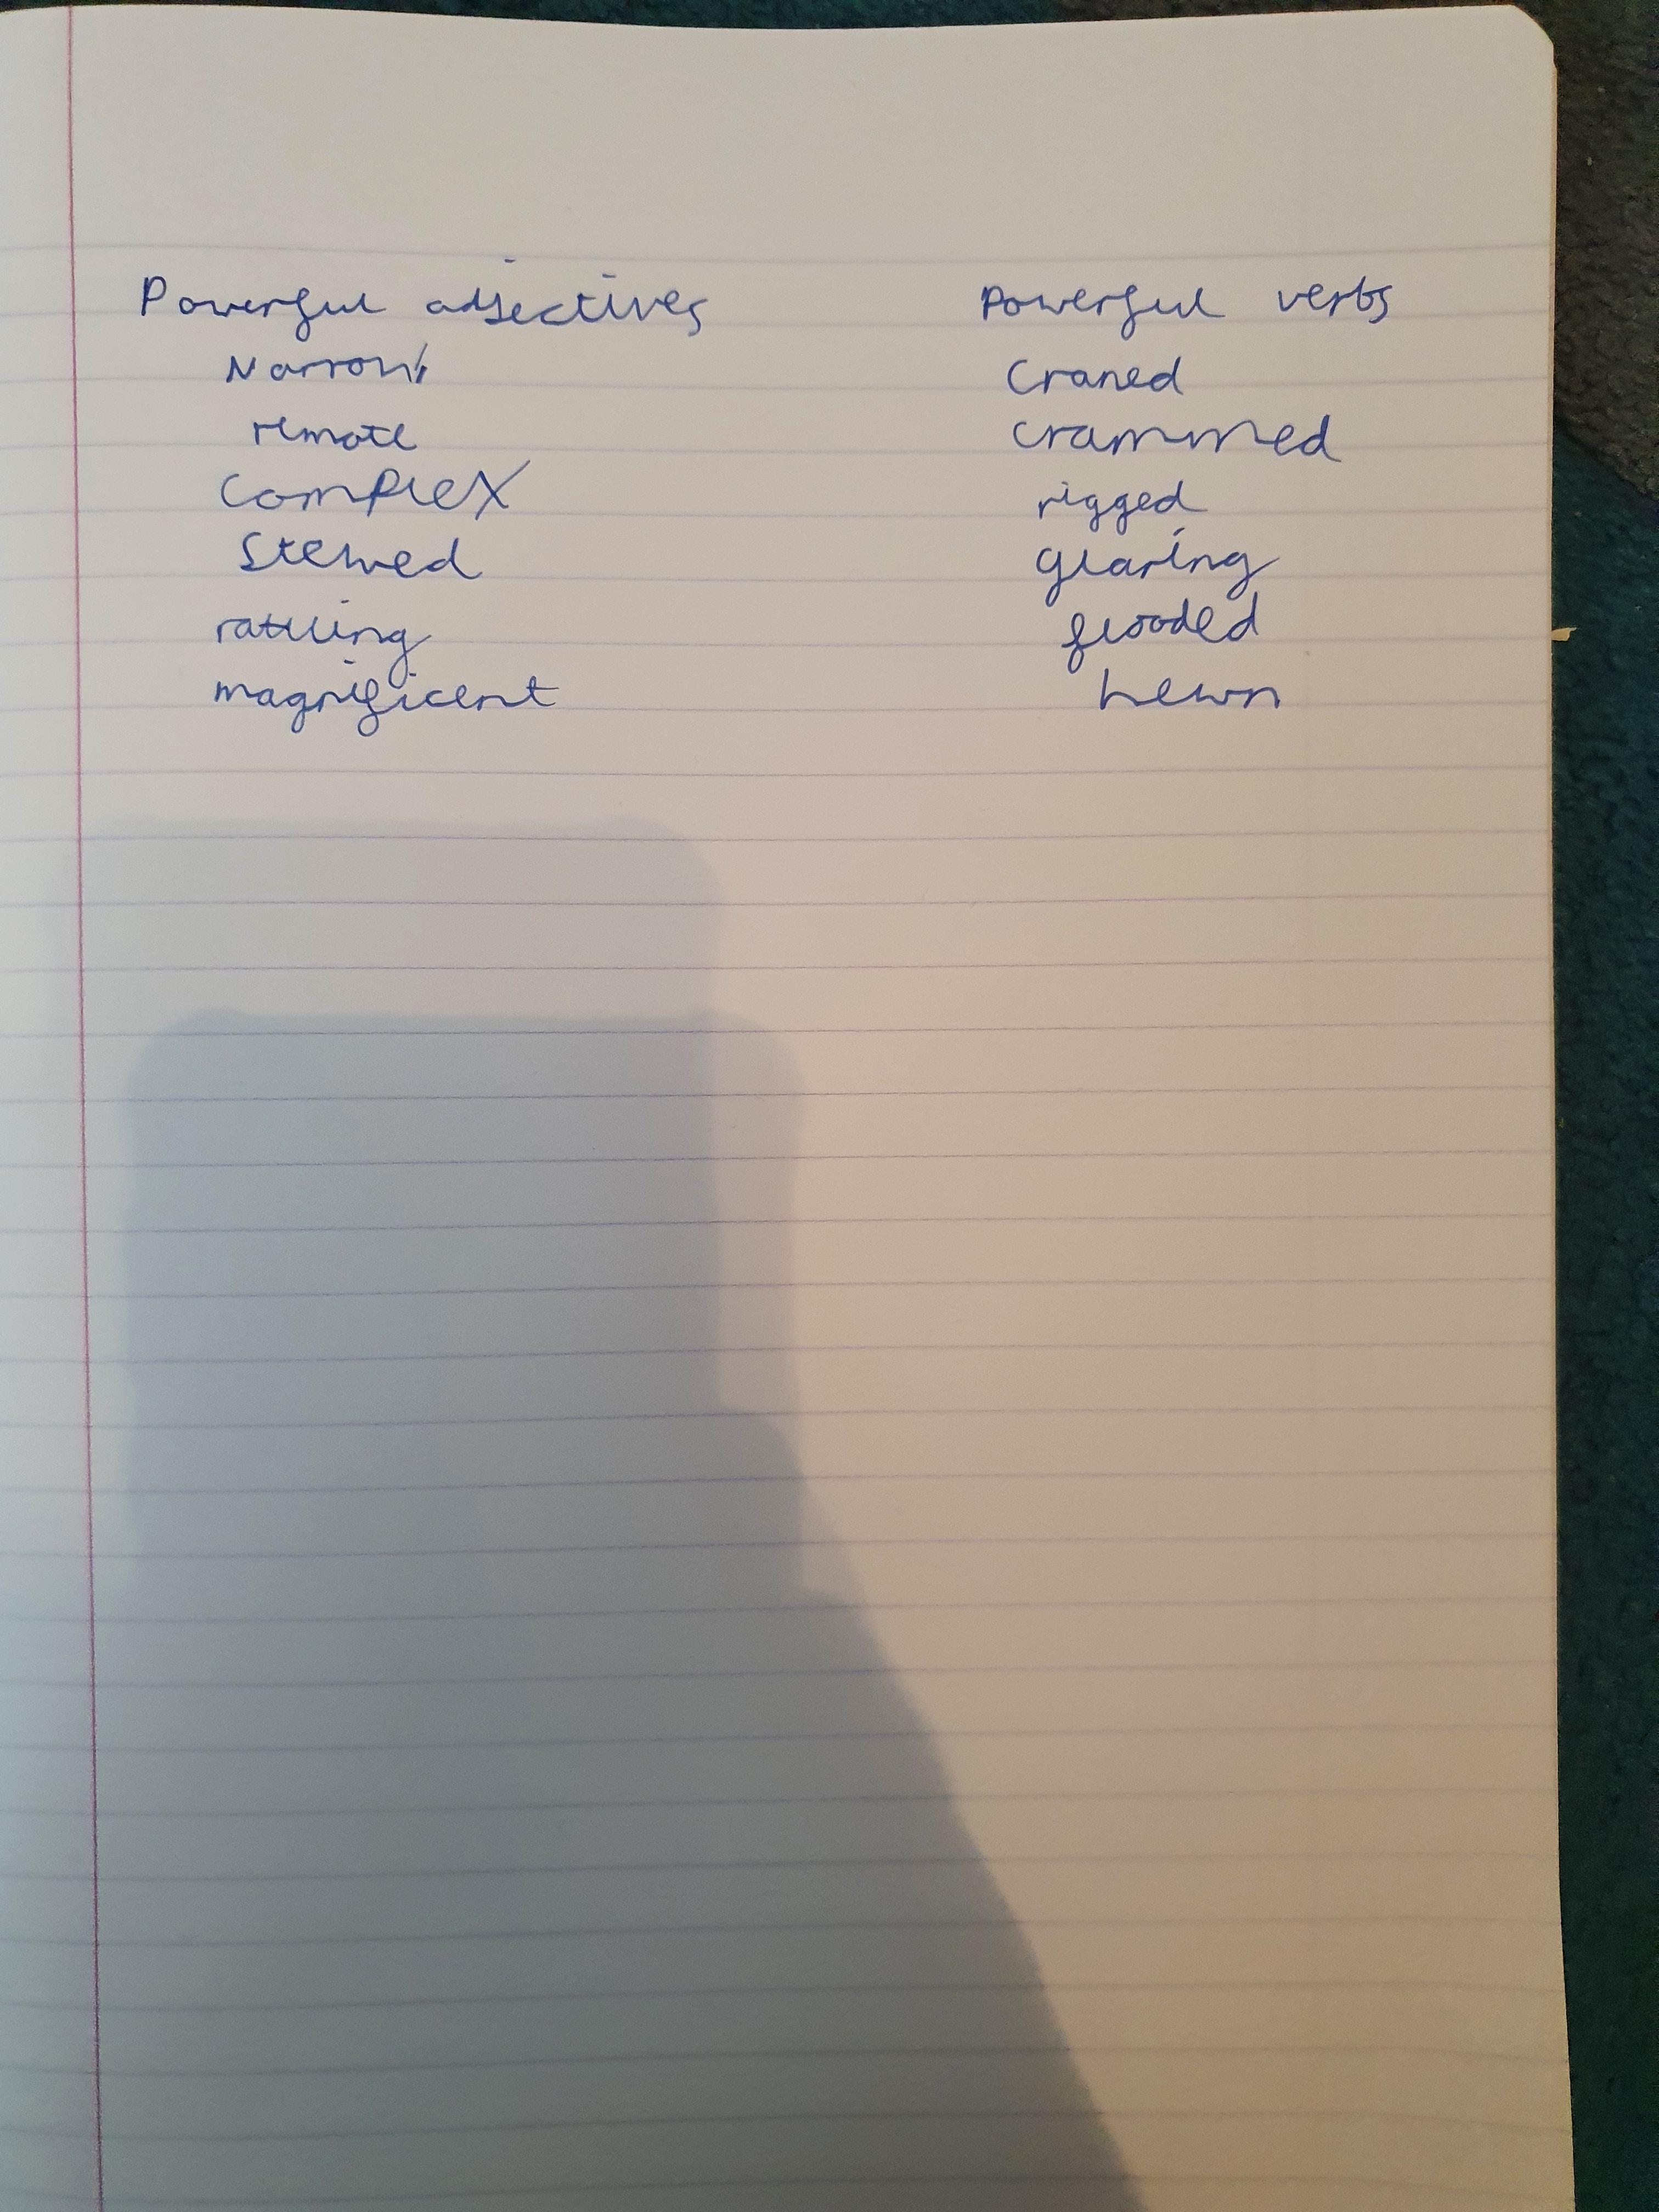 Powerful adjectives Powerful verbs
Narrow Craned
remote crammed
Complex rigged
Stewed glaring
rattling flooded
magnificent hewn